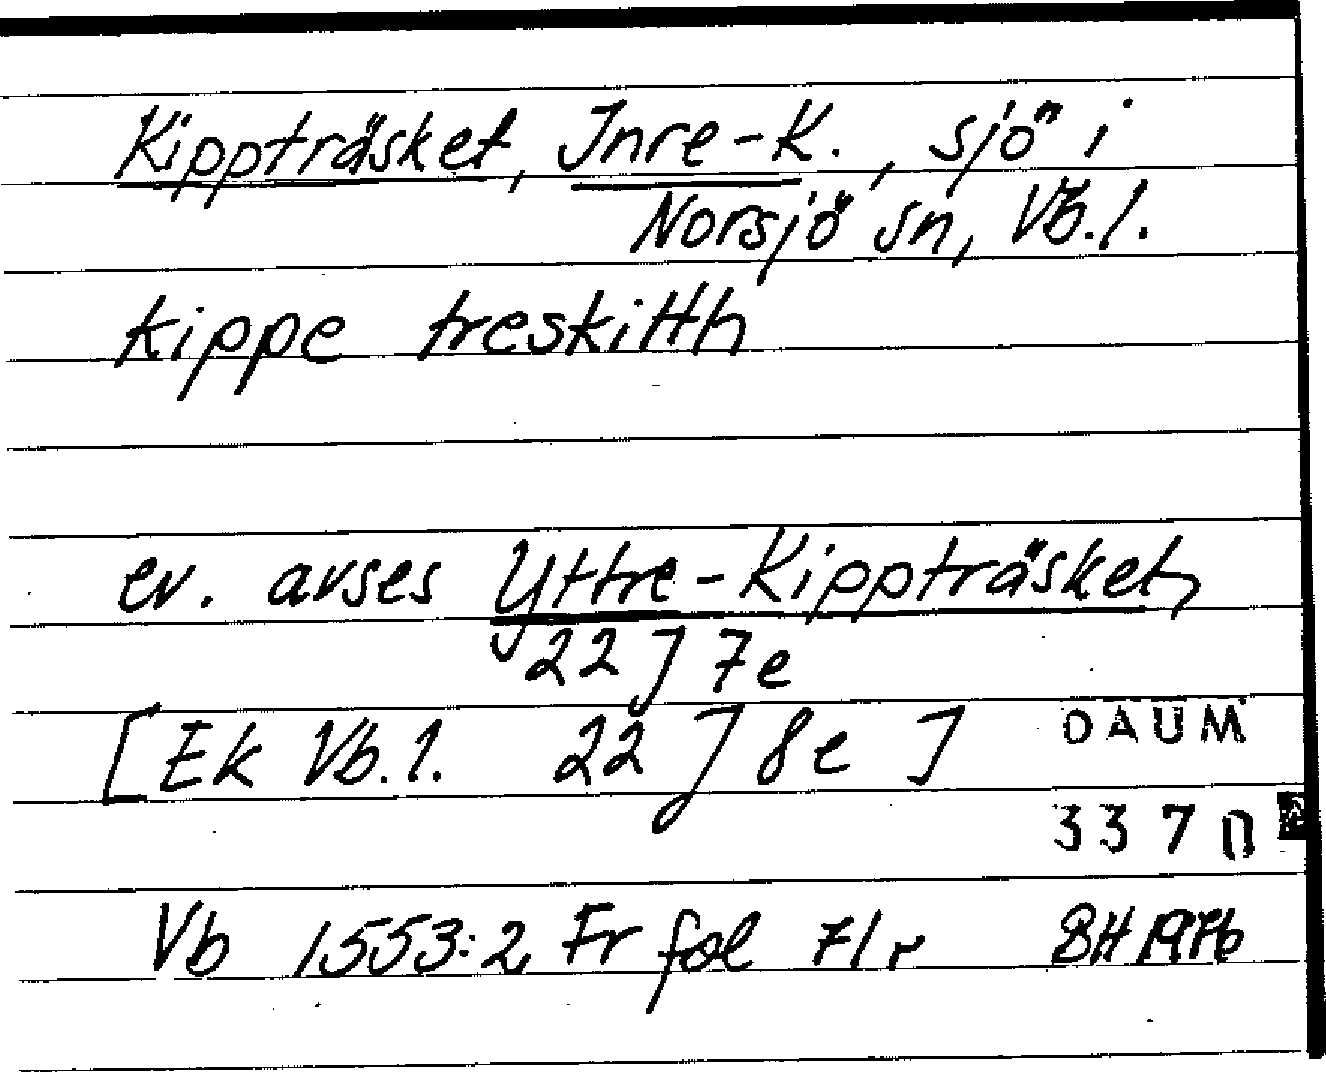 Kippträsket, Inre-K., sjö i
Norsjö sn, Vb.l.
kippe treskitth
ev. avses Yttre-Kippträsket,
22 J 7e
[Ek Vb.l. 22 J 8e]
DAUM
3370
Vb 1553:2 Fr fol 71r BH 1976